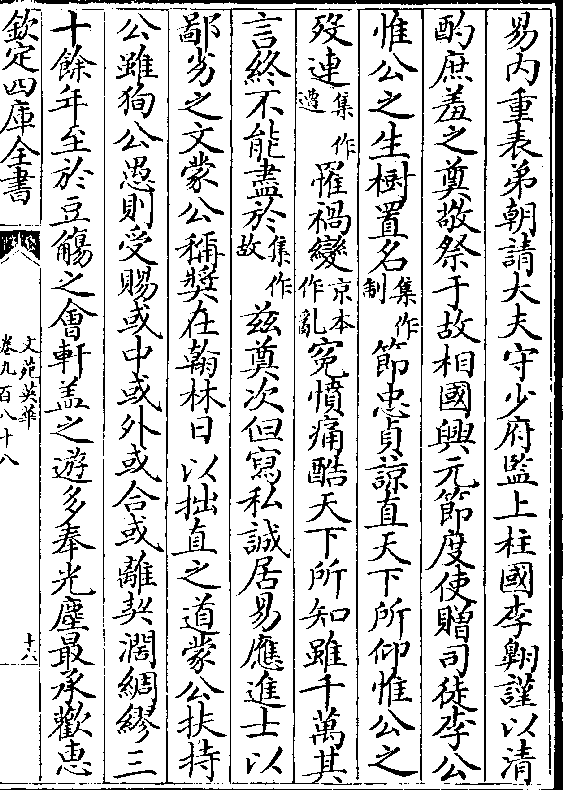 易内重表弟朝請大夫守少府監上柱國李翺謹以清
酌庶羞之奠敬祭于故相國興元節度使贈司徒李公
惟公之生樹置名集作制節忠貞諒直天下所仰惟公之
殁連集作遭罹禍變京本作亂寃憤痛酷天下所知雖千萬其
言終不能盡於集作故兹奠次但寫私誠居易應進士以
鄙劣之文蒙公稱奬在翰林日以拙直之道蒙公扶持
公雖狥公愚則受賜或中或外或合或離契濶綢繆三
十餘年至於豆觴之會軒盖之遊多奉光塵最承歡惠
欽定四庫全書
文苑英華
卷九百八十八
十六